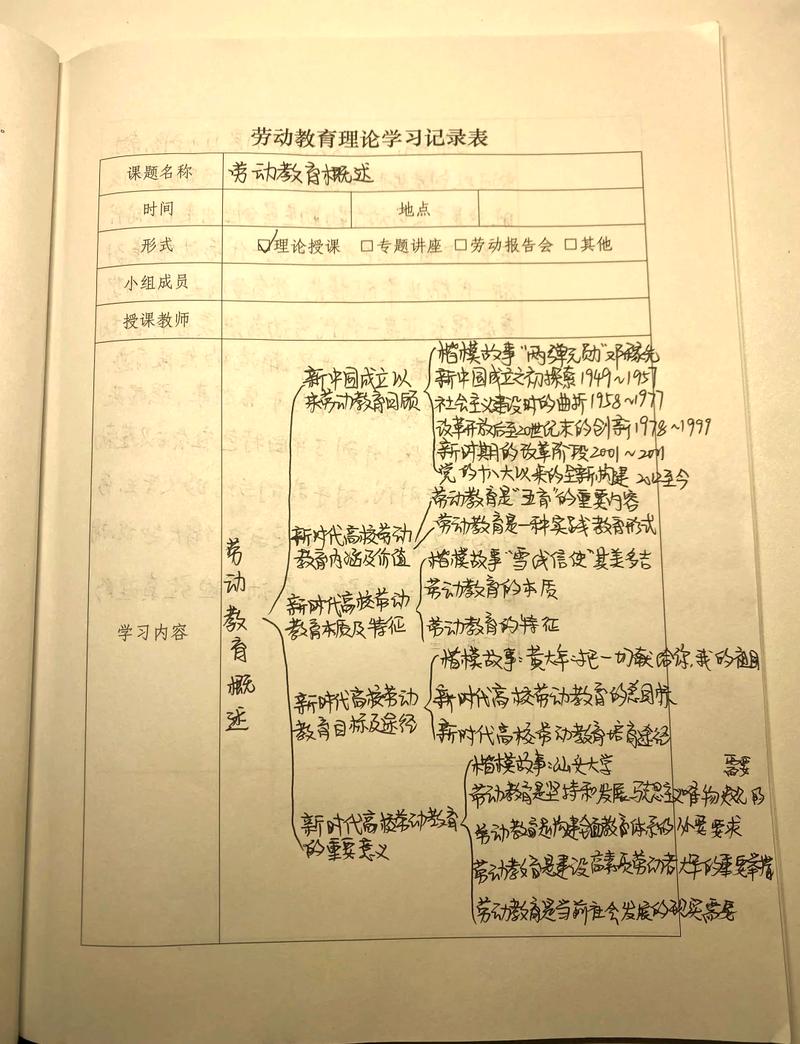 劳动教育理论学习记录表
课题名称 劳动教育概述
时间 地点
形式 ☑理论授课 □专题讲座 □劳动报告会 □其他
小组成员
授课教师
学习内容
劳动教育概述
新中国成立以
来劳动教育回顾
楷模故事"两弹元勋"邓稼先
新中国成立之初探索1949~1957
社会主义建设时的曲折1958~1977
改革开放后至20世纪末的创新1978~1999
新时期的改革阶段2001~2011
党的十八大以来的全新构建 2012至今
新时代高校劳动
教育内涵及价值
劳动教育是"五育"的重要内容
劳动教育是一种实践教育形式
新时代高校劳动
教育本质及特征
楷模故事"雪线信使"其美多吉
劳动教育的本质
劳动教育的特征
新时代高校劳动
教育目标及途径
楷模故事:黄大年:把一切献给你,我的祖国
新时代高校劳动教育的总目标
新时代高校劳动教育培育途径
新时代高校劳动教育
的重要意义
楷模故事:大学
需要
劳动教育是坚持和发展马思主义唯物史观的
劳动教育是构建全面教育体系的必要要求
劳动教育是建设高素质劳动者大军的重要举措
劳动教育是当前社会发展的现实需要